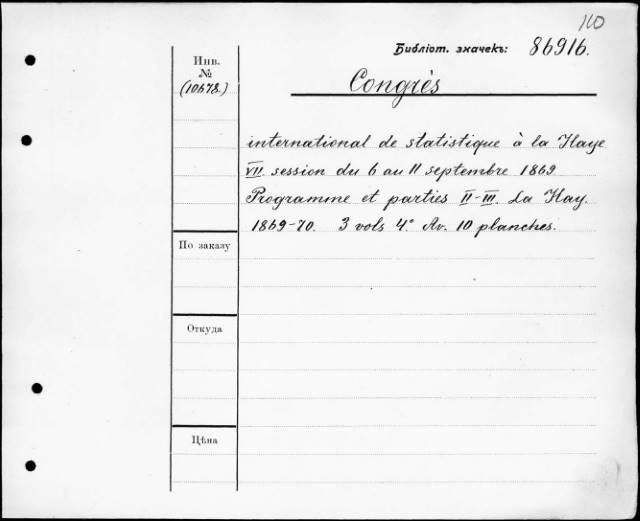 110
Библiот. значекъ: 86916.
Инв.
№
(10678.)
Congrès
international de statistique à la Haye
VII. session du 6 au 11 septembre 1869.
Programme et parties II-III. La Hay.
1869-70. 3 vols 4.° Av. 10 planches.
По заказу
Откуда
Цѣна